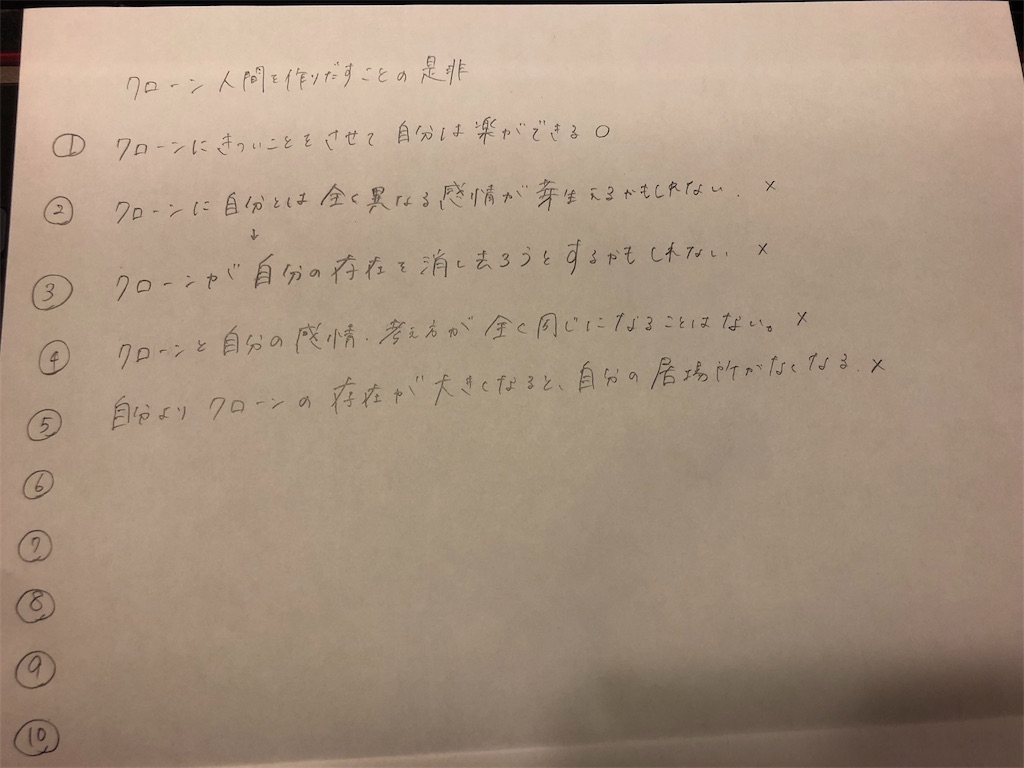 クローン人間を作りだすことの是非
① クローンにきついことをさせて自分は楽ができる ○
② クローンに自分とは全く異なる感情が芽生えるかもしれない. ×
↓
③ クローンが自分の存在を消し去ろうとするかもしれない. ×
④ クローンと自分の感情.考え方が全く同じになることはない。 ×
⑤ 自分よりクローンの存在が大きくなると、自分の居場所がなくなる. ×
⑥
⑦
⑧
⑨
⑩